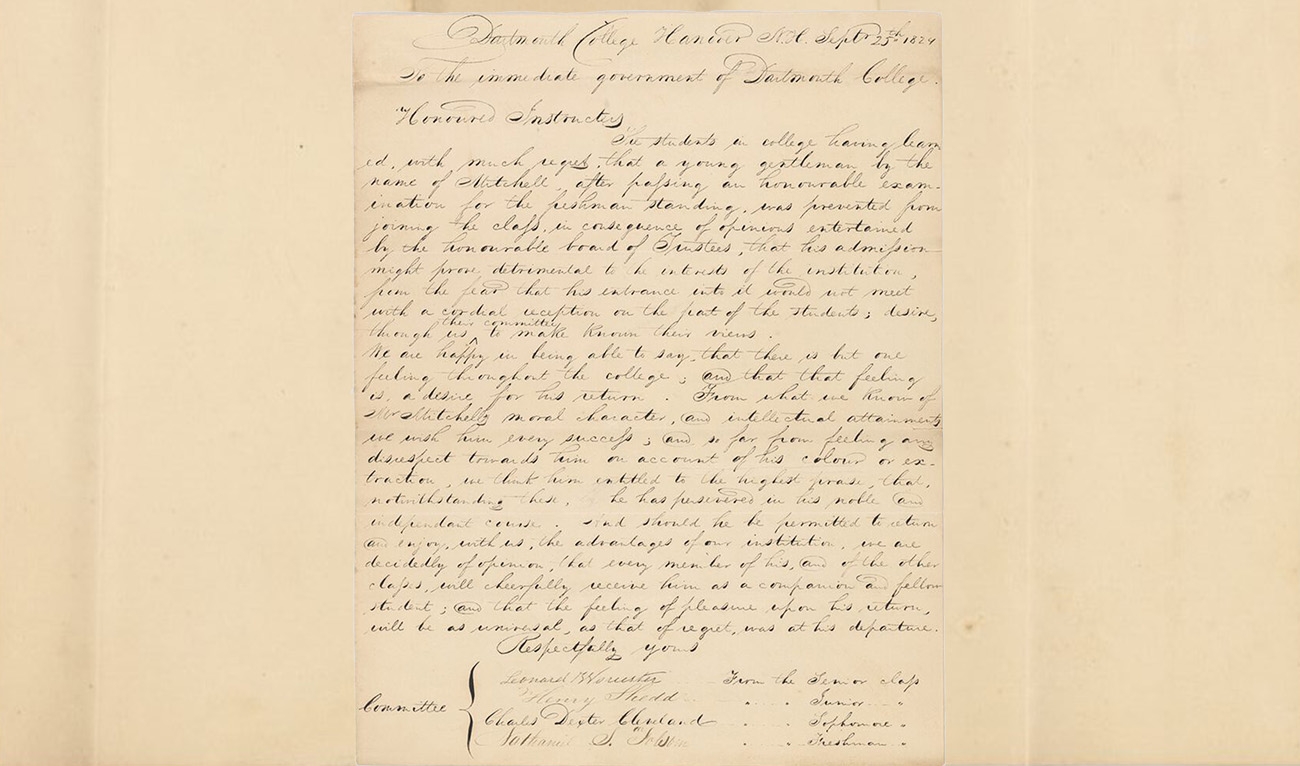 Dartmouth College Hanover N.H. Septr 25th 1824
To the immediate government of Dartmouth College.
Honoured Instructers
The students in college having learn
ed, with much regret, that a young gentleman by the
name of Mitchell, after passing an honourable exam-
ination for the freshman standing, was prevented from
joining the class, in consequence of opinions entertained
by the honourable board of Trustees, that his admission
might prove detrimental to the interests of the institution,
from the fear that his entrance into it would not meet
with a cordial reception on the part of the students; desire,
their committee
through us, ^ to make known their views.
We are happy in being able to say, that there is but one
feeling throughout the college; and that that feeling
is, a desire for his return. From what we know of
Mr Mitchell's moral character, and intellectual attainments
we wish him every success; and so far from feeling any
disrespect towards him on account of his colour or ex-
traction, we think him entitled to the highest praise, that,
notwithstanding these, he has persevered in his noble and
independant course. And should he be permitted to return
and enjoy, with us, the advantages of our institution, we are
decidedly of opinion, that every member of his, and of the other
classes, will cheerfully receive him as a companion and fellow
student; and that the feeling of pleasure upon his return,
will be as universal, as that of regret, was at his departure.
Respectfully yours
Committee
Leonard Worcester From the Senior class
Henry Shedd " " Junior "
Charles Dexter Cleveland " " Sophomore "
Nathaniel S. " " Freshman "